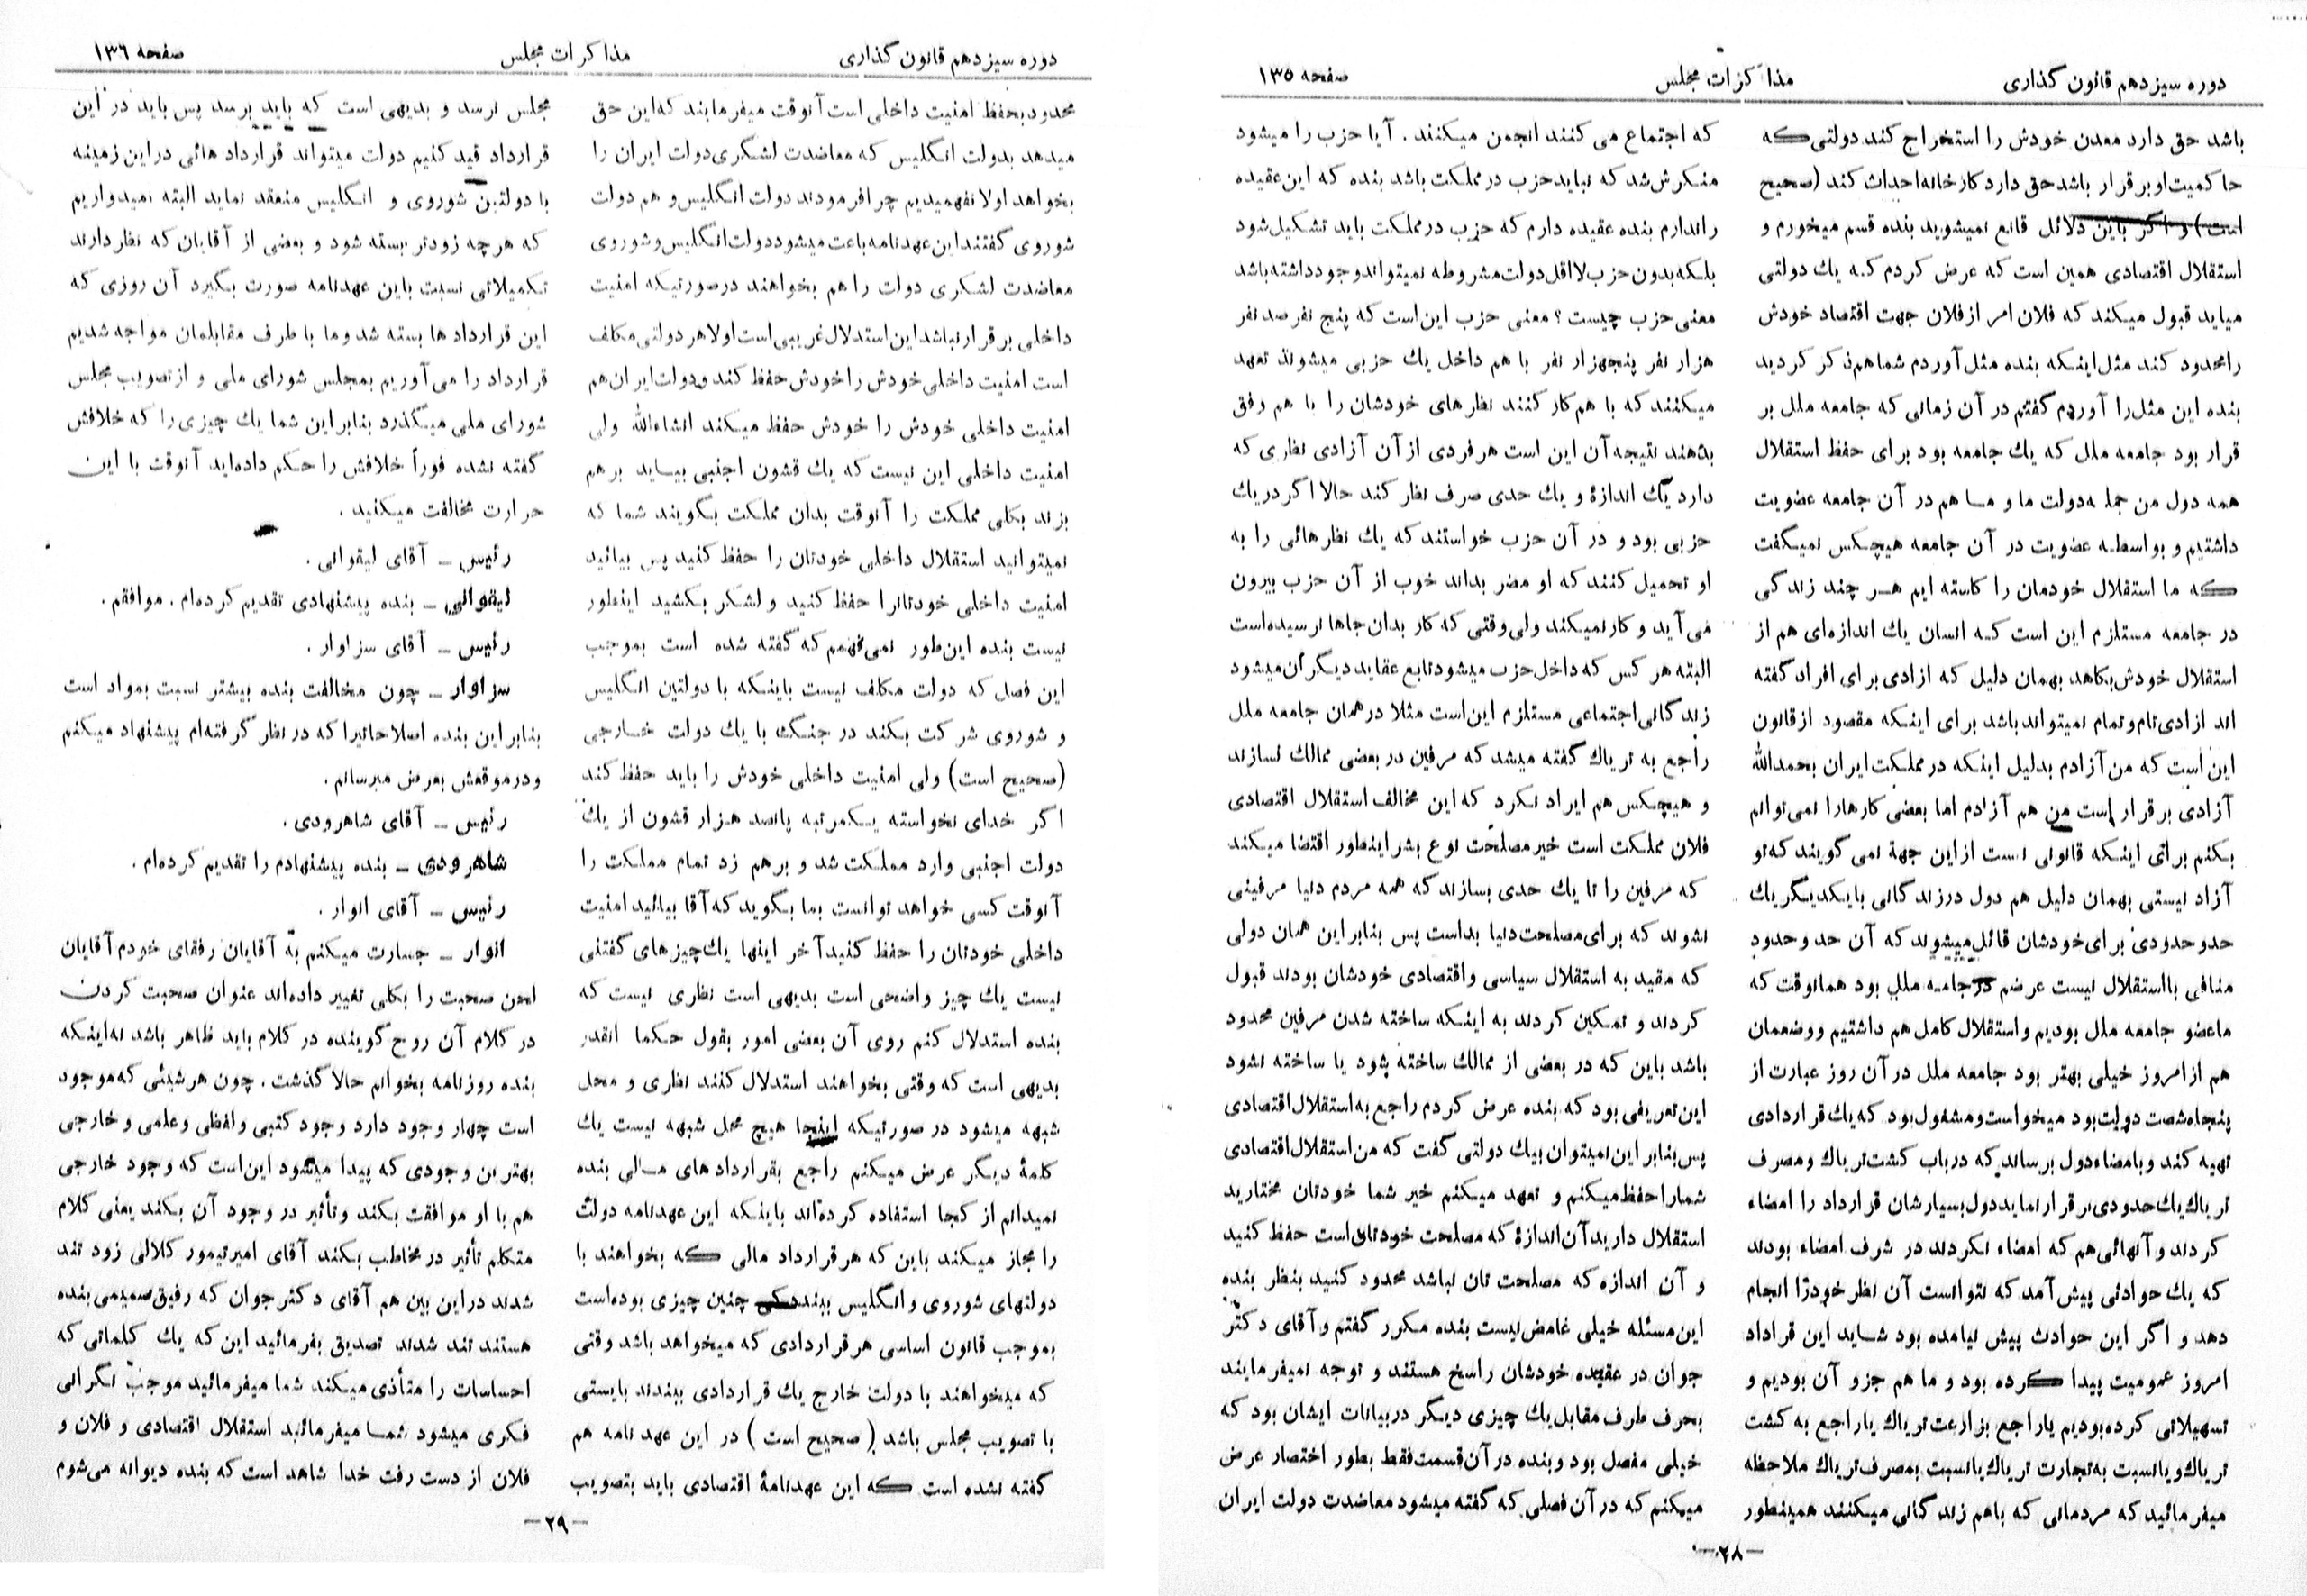 دوره سیزدهم قانون گذاری
مذاکرات مجلس
صفحه ۱۳۵
باشد حق دارد معدن خودش را استخراج کند دولتی که
حاکمیت او برقرار باشد حق دارد کارخانه احداث کند (صحیح
است) و اگر باین دلائل قانع نمیشوید بنده قسم میخورم و
استقلال اقتصادی همین است که عرض کردم که یك دولتی
میاید قبول میکند که فلان امر از فلان جهت اقتصاد خودش
را محدود کند مثل اینکه بنده مثل آوردم شما هم ذکر کردید
بنده این مثل را آوردم گفتم در آن زمانی که جامعه ملل بر
قرار بود جامعه ملل که یك جامعه بود برای حفظ استقلال
همه دول من جمله دولت ما و ما هم در آن جامعه عضویت
داشتیم و بواسطه عضویت در آن جامعه هیچکس نمیگفت
که ما استقلال خودمان را کاسته ایم هر چند زندگی
در جامعه مستلزم این است که انسان یك اندازه‌ای هم از
استقلال خودش بکاهد بهمان دلیل که ازادی برای افراد گفته
اند ازادی تام و تمام نمیتواند باشد برای اینکه مقصود از قانون
این است که من آزادم بدلیل اینکه در مملکت ایران بحمدالله
آزادی برقرار است من هم آزادم اما بعضی کارها را نمی‌توانم
بکنم برای اینکه قانونی است از این جهة نمی گویند که تو
آزاد نیستی بهمان دلیل هم دول درزندگانی با یکدیگر یك
حدو حدودی برای خودشان قائل میشوند که آن حد و حدود
منافی با استقلال نیست عرضم در جامعه ملل بود همانوقت که
ما عضو جامعه ملل بودیم و استقلال کامل هم داشتیم و وضعمان
هم از امروز خیلی بهتر بود جامعه ملل در آن روز عبارت از
پنجاه شصت دولت بود میخواست و مشغول بود که یك قراردادی
تهیه کند و بامضاء دول برساند که در باب کشت تریاك و مصرف
تریاك یك حدودی برقرار نماید دول بسیارشان قرارداد را امضاء
کردند و آنهائی هم که امضاء نکردند در شرف امضاء بودند
که یك حوادثی پیش آمد که نتوانست آن نظر خودرا انجام
دهد و اگر این حوادث پیش نیامده بود شاید این قراداد
امروز عمومیت پیدا کرده بود و ما هم جزو آن بودیم و
تسهیلاتی کرده بودیم یا راجع بزارعت تریاك یا راجع به کشت
تریاك و یا نسبت به تجارت تریاك یا نسبت بمصرف تریاك ملاحظه
میفرمائید که مردمانی که باهم زندگانی میکنند همینطور
که اجتماع می کنند انجمن میکنند . آیا حزب را میشود
منکرش شد که نباید حزب در مملکت باشد بنده که این عقیده
را ندارم بنده عقیده دارم که حزب در مملکت باید تشکیل شود
بلکه بدون حزب لااقل دولت مشروطه نمیتواند وجود داشته باشد
معنی حزب چیست ؟ معنی حزب این است که پنج نفر صد نفر
هزار نفر پنجهزار نفر با هم داخل یك حزبی میشوند تعهد
میکنند که با هم کار کنند نظرهای خودشان را با هم وفق
بدهند نتیجه آن این است هر فردی از آن آزادی نظاری که
دارد یك اندازهٔ و یك حدی صرف نظر کند حالا اگر در یك
حزبی بود و در آن حزب خواستند که یك نظرهائی را به
او تحمیل کنند که او مضر بداند خوب از آن حزب بیرون
می آید و کار نمیکند ولی وقتی که کار بدان جاها نرسیده است
البته هر کس که داخل حزب میشود تابع عقاید دیگرأن میشود
زندگانی اجتماعی مستلزم این است مثلا در همان جامعه ملل
راجع به تریاك گفته میشد که مرفین در بعضی ممالك نسازند
و هیچکس هم ایراد نکرد که این مخالف استقلال اقتصادی
فلان مملکت است خیر مصلحت نوع بشر اینطور اقتضا میکند
که مرفین را تا یك حدی بسازند که همه مردم دنیا مرفینی
نشوند که برای مصلحت دنیا بد است پس بنابراین همان دولی
که مقید به استقلال سیاسی و اقتصادی خودشان بودند قبول
کردند و تمکین کردند به اینکه ساخته شدن مرفین محدود
باشد باین که در بعضی از ممالك ساخته شود یا ساخته نشود
این تعریفی بود که بنده عرض کردم راجع به استقلال اقتصادی
پس بنابراین نمیتوان بیك دولتی گفت که من استقلال اقتصادی
شمارا حفظ میکنم و تعهد میکنم خیر شما خودتان مختارید
استقلال دارید آن اندازهٔ که مصلحت خودتان است حفظ کنید
و آن اندازه که مصلحت تان نباشد محدود کنید بنظر بنده
این مسئله خیلی غامض نیست بنده مکرر گفتم و آقای دکتر
جوان در عقیده خودشان راسخ هستند و توجه نمیفرمایند
بحرف طرف مقابل یك چیزی دیگر در بیانات ایشان بود که
خیلی مفصل بود و بنده در آن قسمت فقط بطور اختصار عرض
میکنم که در آن فصلی که گفته میشود معاضدت دولت ایران
–۲۸–
دوره سیزدهم قانون گذاری
مذاکرات مجلس
صفحه ۱۳۶
محدود بحفظ امنیت داخلی است آنوقت میفرمایند که این حق
میدهد بدولت انگلیس که معاضدت لشگری دولت ایران را
بخواهد اولا نفهمیدیم چرا فرمودند دولت انگلیس و هم دولت
شوروی گفتند این عهدنامه باعث میشود دولت انگلیس و شوروی
معاضدت لشکری دولت را هم بخواهند در صورتیکه امنیت
داخلی برقرار نباشد این استدلال غریبی است اولا هر دولتی مکلف
است امنیت داخلی خودش را خودش حفظ کند و دولت ایران هم
امنیت داخلی خودش را خودش حفظ میکند انشاءالله ولی
امنیت داخلی این نیست که یك قشون اجنبی بیاید برهم
بزند بکلی مملکت را آنوقت بدان مملکت بگویند شما که
نمیتوانید استقلال داخلی خودتان را حفظ کنید پس بیائید
امنیت داخلی خودتانرا حفظ کنید و لشکر بکشید اینطور
نیست بنده این‌طور نمی‌فهمم که گفته شده است بموجب
این فصل که دولت مکلف نیست باینکه با دولتین انگلیس
و شوروی شرکت بکند در جنگ با یك دولت خارجی
(صحیح است) ولی امنیت داخلی خودش را باید حفظ کند
اگر خدای نخواسته یکمرتبه پانصد هزار قشون از یك
دولت اجنبی وارد مملکت شد و برهم زد تمام مملکت را
آنوقت کسی خواهد توانست بما بگوید که آقا بیائید امنیت
داخلی خودتان را حفظ کنید آخر اینها یك چیزهای گفتنی
نیست یك چیز واضحی است بدیهی است نظری نیست که
بنده استدلال کنم روی آن بعضی امور بقول حکما انقدر
بدیهی است که وقتی بخواهند استدلال کنند نظری و محل
شبهه میشود در صورتیکه اینجا هیچ محل شبهه نیست یك
کلمهٔ دیگر عرض میکنم راجع بقراردادهای مالی بنده
نمیدانم از کجا استفاده کرده‌اند باینکه این عهدنامه دولت
را مجاز میکند باین که هر قرارداد مالی که بخواهند با
دولتهای شوروی و انگلیس ببندد کی چنین چیزی بوده است
بموجب قانون اساسی هر قراردادی که میخواهد باشد وقتی
که میخواهند با دولت خارج یك قراردادی ببندند بایستی
با تصویب مجلس باشد ( صحیح است ) در این عهدنامه هم
گفته نشده است که این عهدنامهٔ اقتصادی باید بتصویب
مجلس نرسد و بدیهی است که باید برسد پس باید در این
قرارداد قید کنیم دولت میتواند قراردادهائی در این زمینه
با دولتین شوروی و انگلیس منعقد نماید البته امیدواریم
که هر چه زودتر بسته شود و بعضی از آقایان که نظر دارند
تکمیلاتی نسبت باین عهدنامه صورت بگیرد آن روزی که
این قراردادها بسته شد و ما با طرف مقابلمان مواجه شدیم
قرارداد را می‌آوریم بمجلس شورای ملی و از تصویب مجلس
شورای ملی میگذرد بنابراین شما یك چیزی را که خلافش
گفته نشده فوراً خلافش را حکم داده‌اید آنوقت با این
حرارت مخالفت میکنید .
رئیس – آقای لیقوانی .
لیقوانی – بنده پیشنهادی تقدیم کرده‌ام . موافقم .
رئیس – آقای سزاوار .
سزاوار – چون مخالفت بنده بیشتر نسبت بمواد است
بنابراین بنده اصلاحاتیرا که در نظر گرفته‌ام پیشنهاد میکنم
و در موقعش بعرض میرسانم .
رئیس – آقای شاهرودی .
شاهرودی – بنده پیشنهادم را تقدیم کرده‌ام .
رئیس – آقای انوار .
انوار – جسارت میکنم به آقایان رفقای خودم آقایان
لحن صحبت را بکلی تغییر داده‌اند عنوان صحبت کردن
در کلام آن روح گوینده در کلام باید ظاهر باشد نه اینکه
بنده روزنامه بخوانم حالا گذشت . چون هر شیئی که موجود
است چهار وجود دارد وجود کتبی و لفظی و علمی و خارجی
بهترین وجودی که پیدا میشود این است که وجود خارجی
هم با او موافقت بکند و تأثیر در وجود آن بکند یعنی کلام
متکلم تأثیر در مخاطب بکند آقای امیرتیمور کلالی زود تند
شدند در این بین هم آقای دکتر جوان که رفیق صمیمی بنده
هستند تند شدند تصدیق بفرمائید این که یك کلماتی که
احساسات را متأذی میکند شما میفرمائید موجب نگرانی
فکری میشود شما میفرمائید استقلال اقتصادی و فلان و
فلان از دست رفت خدا شاهد است که بنده دیوانه می‌شوم
–۲۹–